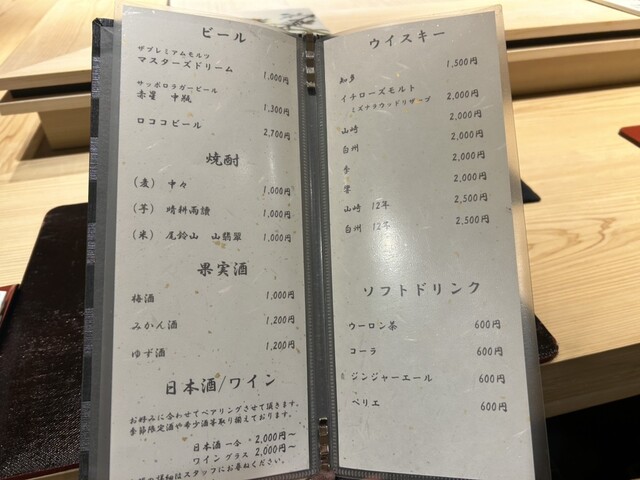 ビール
ザプレミアムモルツ
マスターズドリーム 1,000円
サッポロラガービール
赤星 中瓶 1,300円
ロココビール 2,700円
焼酎
(麦) 中々 1,000円
(芋) 晴耕雨讀 1,000円
(米) 尾鈴山 山翡翠 1,000円
果実酒
梅酒 1,000円
みかん酒 1,200円
ゆず酒 1,200円
日本酒/ワイン
お好みに合わせてペアリングさせて頂きます。
季節限定酒や希少酒等取り揃えております。
日本酒 一合 2,000円~
ワイン グラス 2,000円~
詳細はスタッフにお尋ねください。
ウイスキー
知多 1,500円
イチローズモルト
ミズナラウッドリザーブ 2,000円
山崎 2,000円
白州 2,000円
季 2,000円
響 2,000円
山崎 12年 2,500円
白州 12年 2,500円
ソフトドリンク
ウーロン茶 600円
コーラ 600円
ジンジャーエール 600円
ペリエ 600円